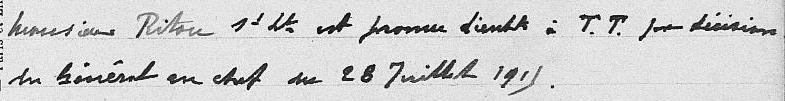 Monsieur Riton s/Lt est promu Lieut à T.T. par décision
du Général en chef du 28 Juillet 1915.